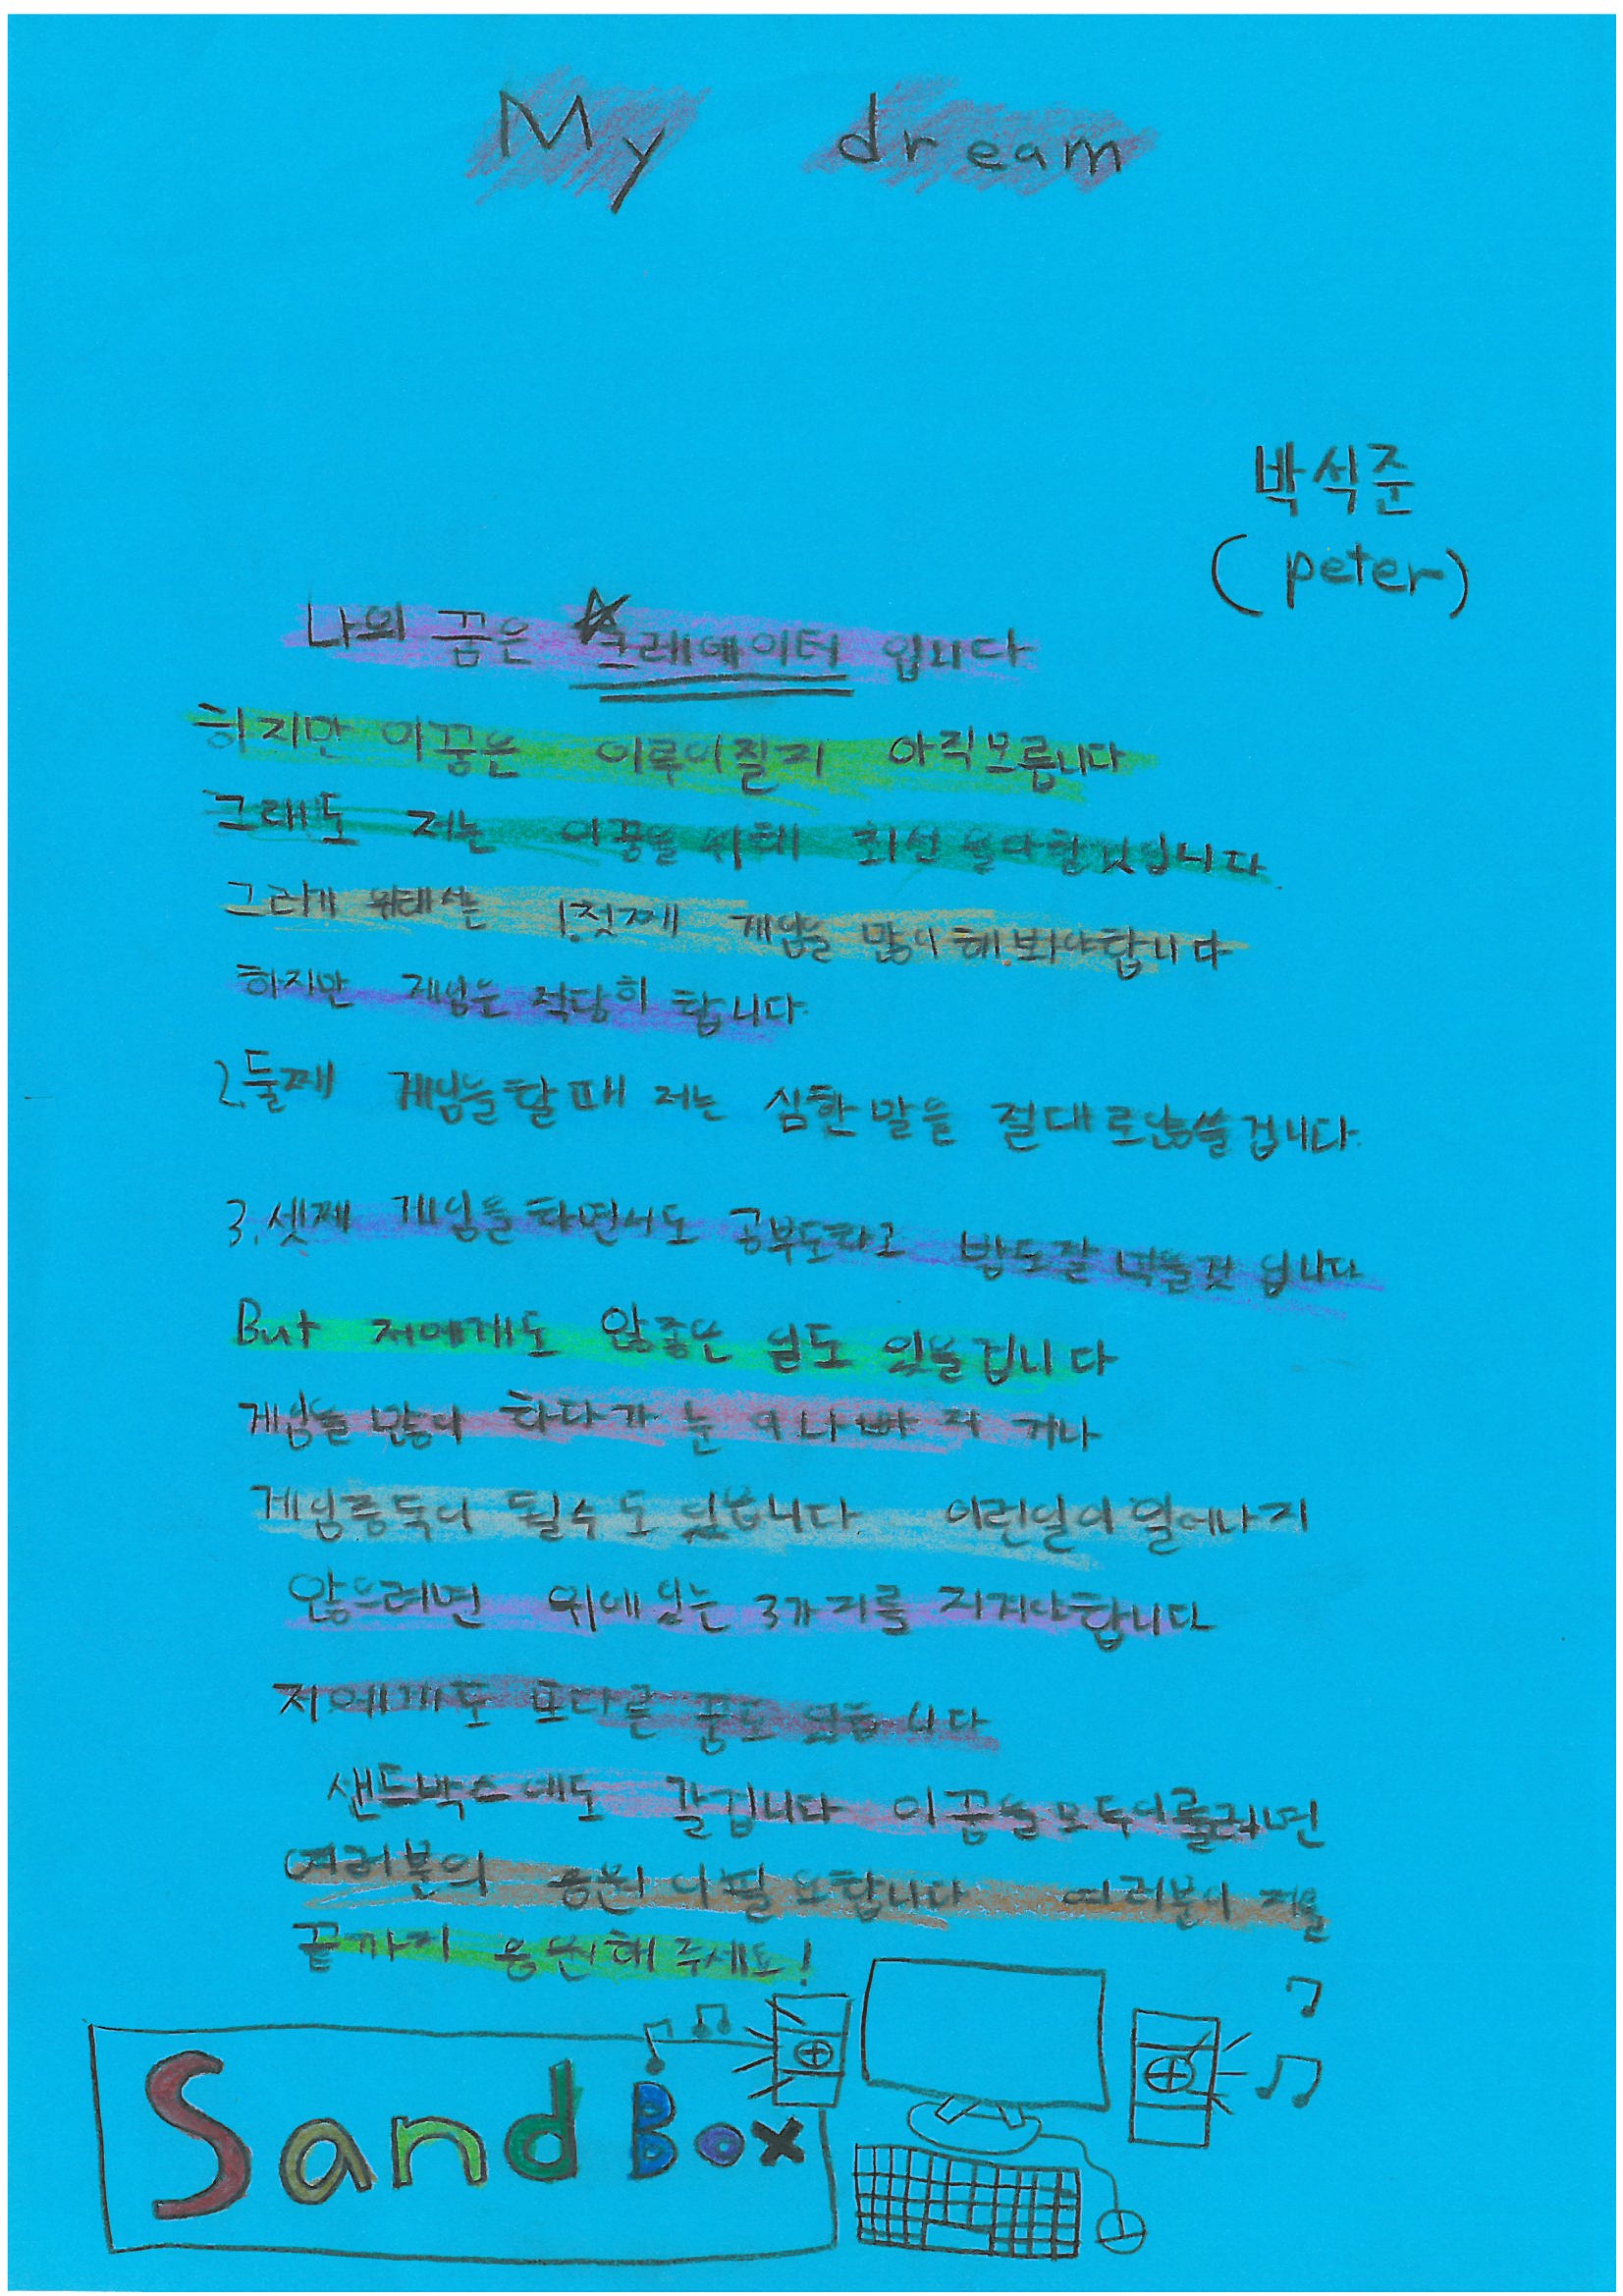 My dream
박석준
(peter)
나의 꿈은 크레에이터 입니다
하지만 이꿈은 이루어질지 아직모릅니다
그래도 저는 이꿈을 위해 최선을다할것입니다
그러기 위해서는 1.첫째 게임을 많이해봐야합니다
하지만 게임은 적당히 합니다
2.둘째 게임을할때 저는 심한말을 절대로않쓸겁니다.
3.셋째 게임을하면서도 공부도하고 밥도잘 먹을것 입니다
But 저에게도 않좋은 일도 있을겁니다
게임을 많이 하다가 눈이나빠지거나
게임중독이 될수도 있습니다 이런일이 일어나지
않으려면 위에있는 3가지를 지켜야합니다
저에게도 또다른 꿈도 있습니다
샌드박스에도 갈겁니다 이꿈을모두이룰려면
여러분의 응원이필요합니다 여러분이 저를
끝까지 응원해주세요!
Sand Box